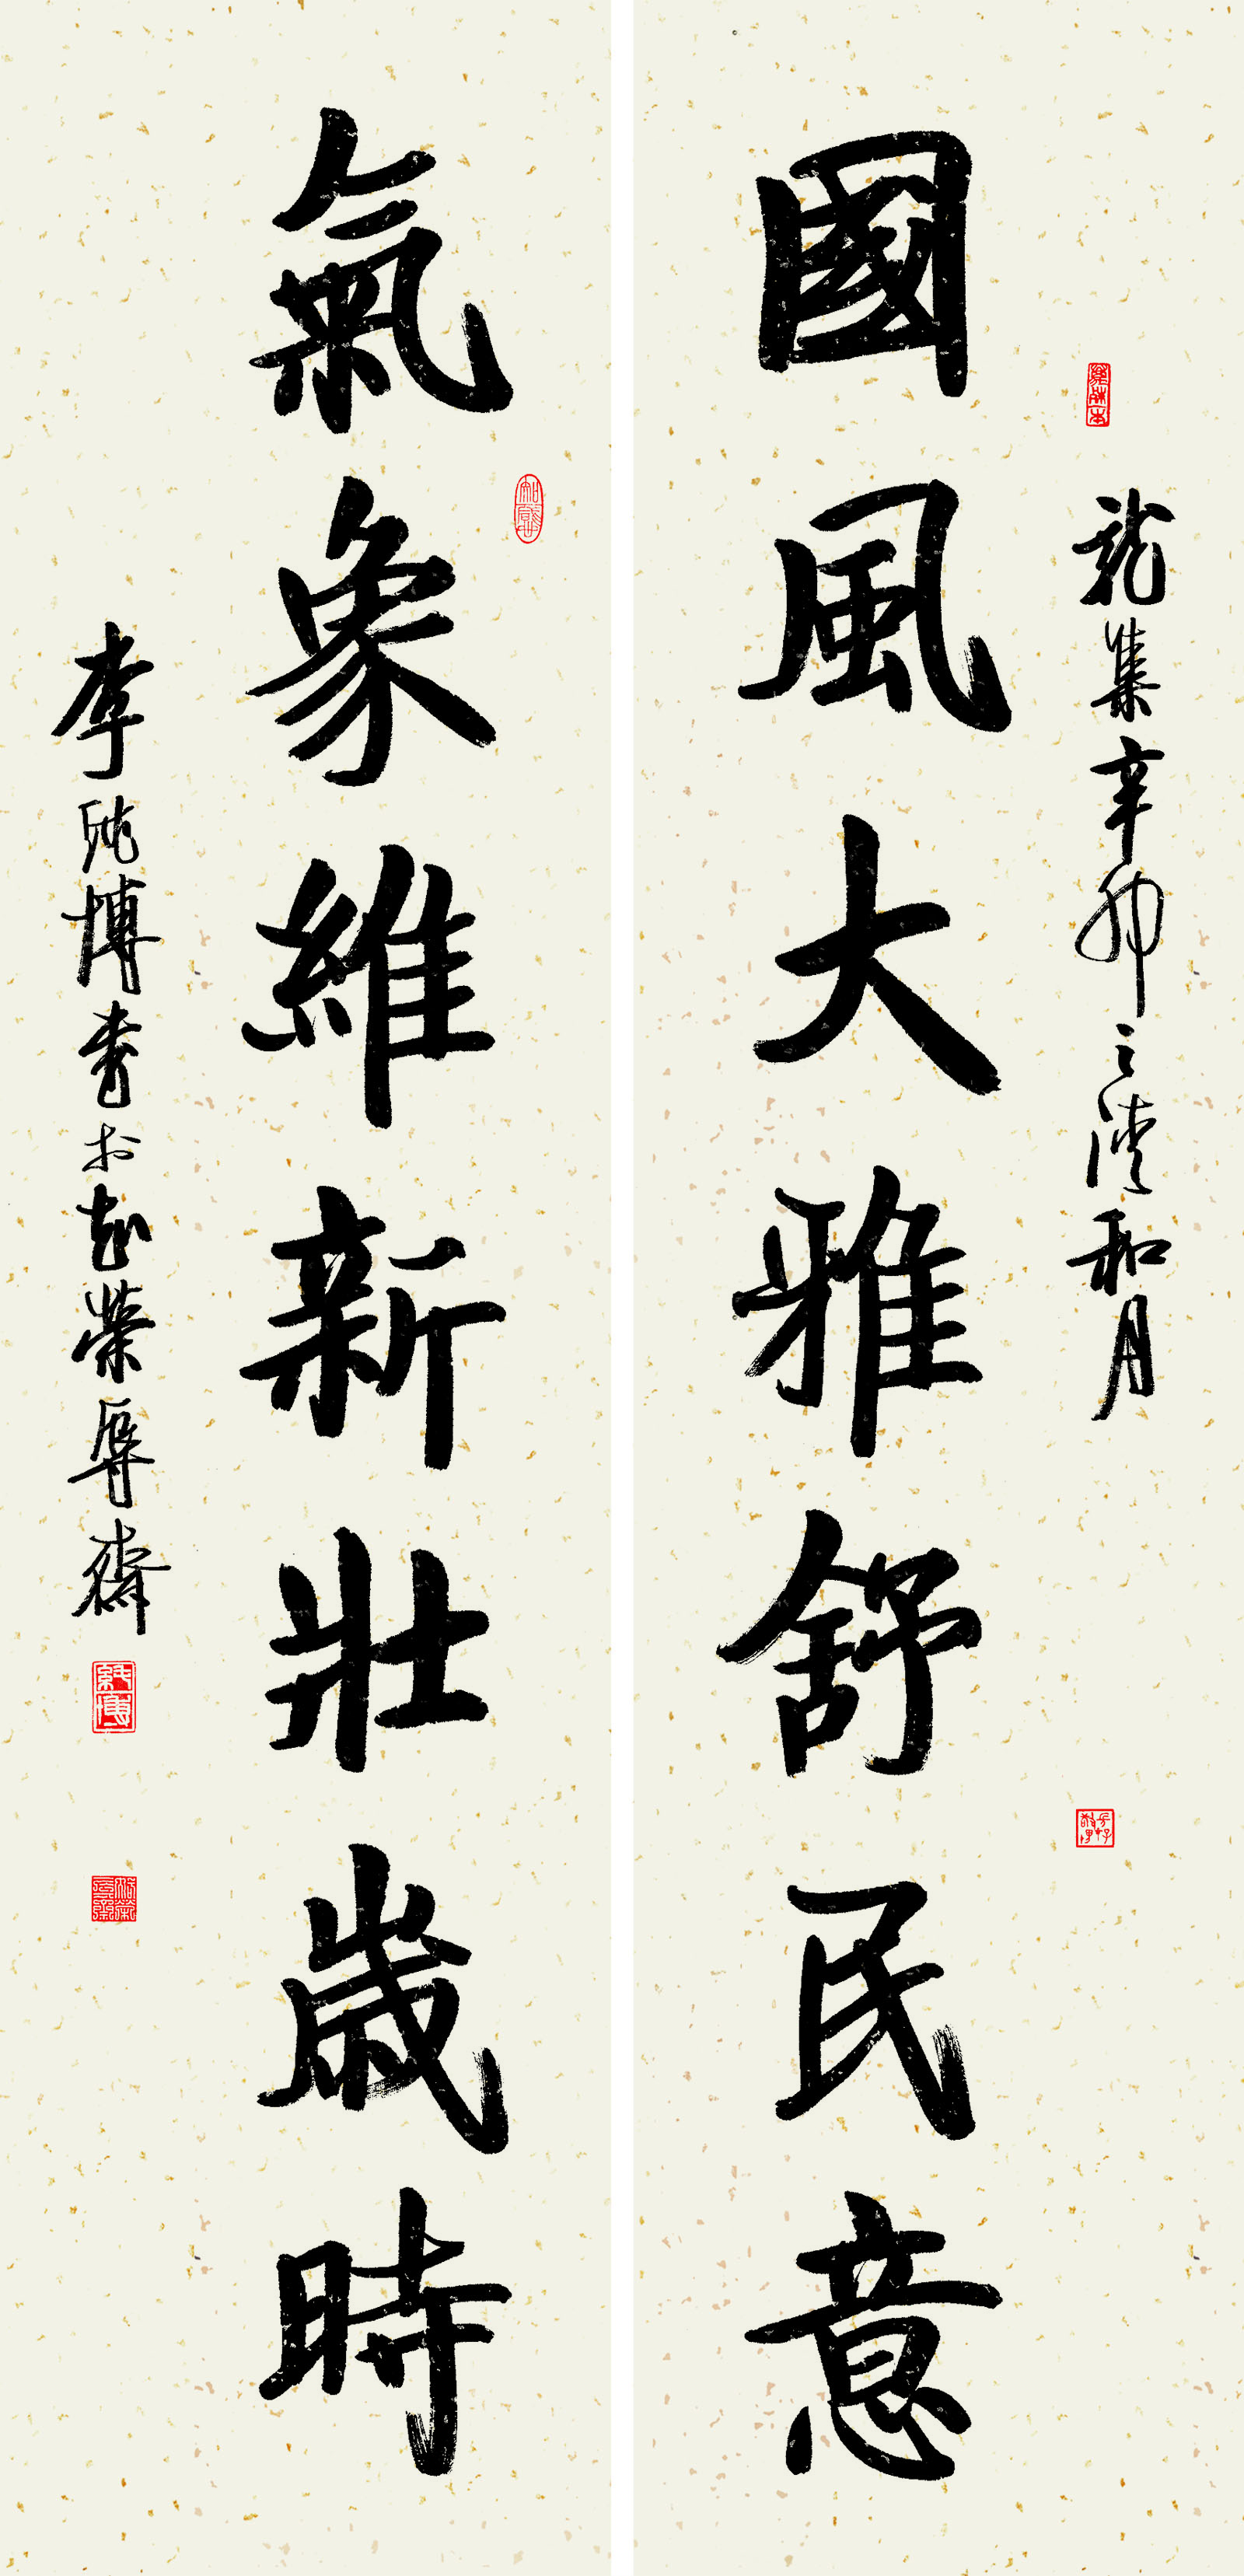 龍集辛卯之清和月
國風大雅舒民意
氣象維新壯歲時
李純博書於忘榮辱齋
純博